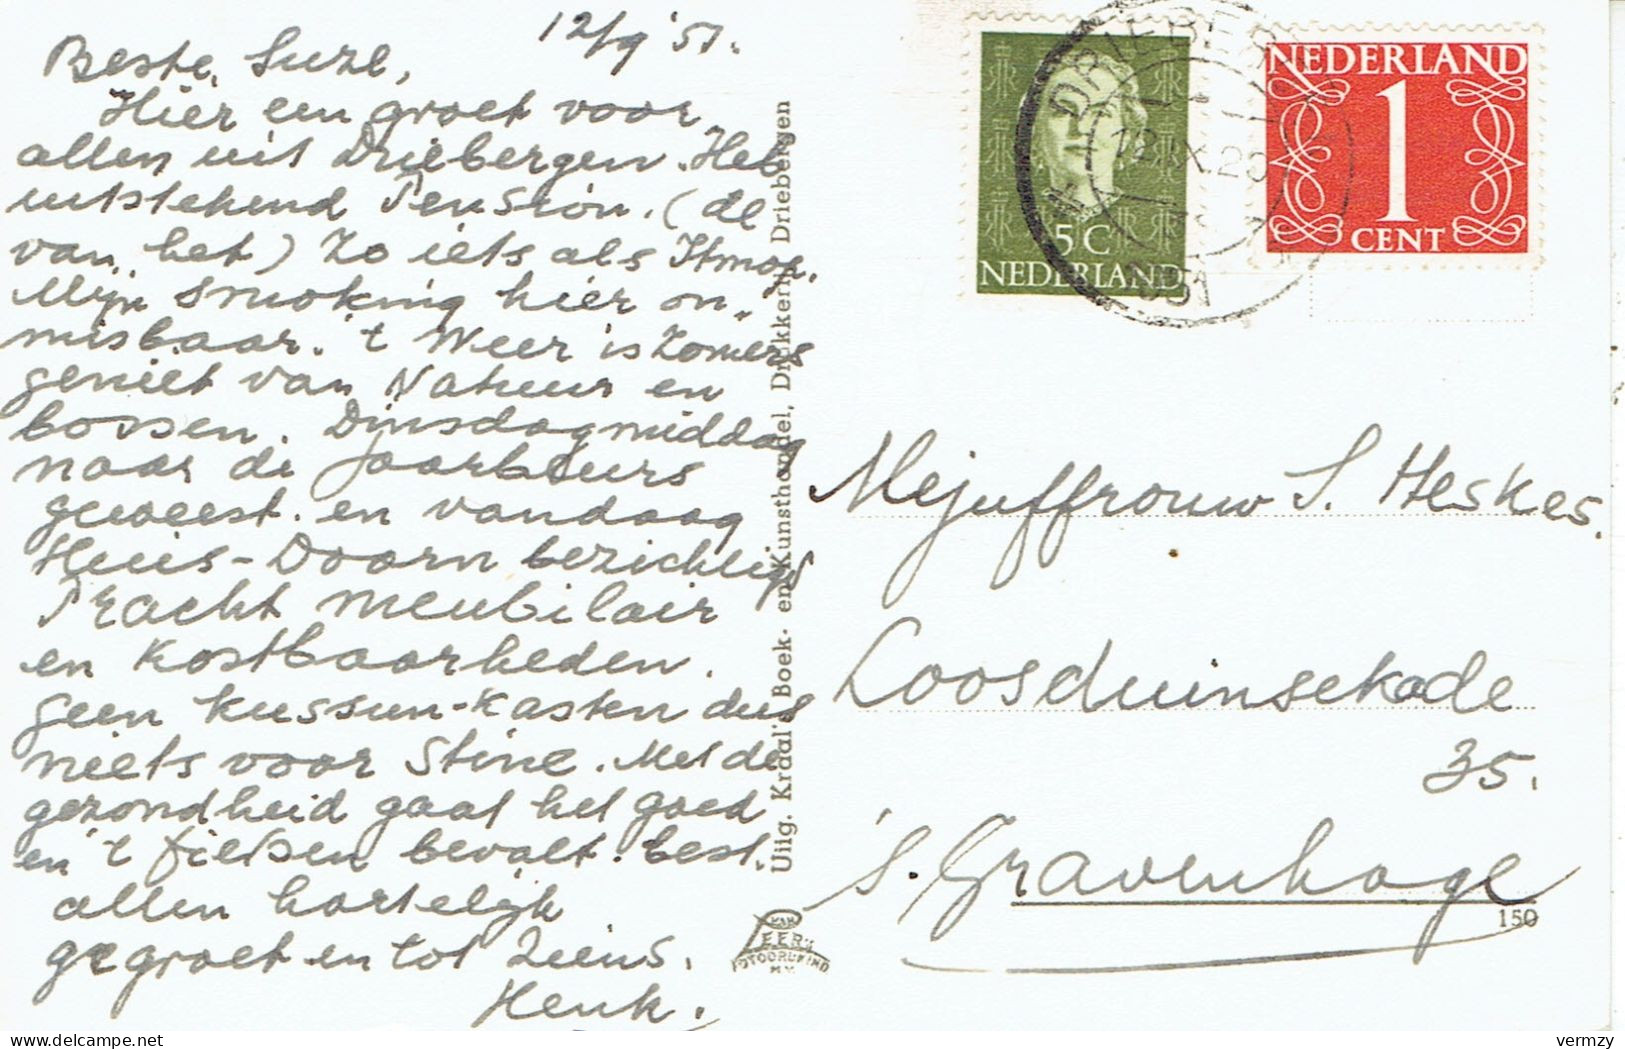 12/9 '51.
Beste Suze,
Hier een groet voor
allen uit Driebergen. Heb
uitstekend Pension. (de
van het) Zo iets als
Mijn smoking hier on-
misbaar. 't Weer is Zomers
geniet van Natuur en
bossen. Dinsdagmiddag
naar de Jaarbeurs
geweest. en vandaag
Huis-Doorn bezichtigd
Pracht meubilair
en kostbaarheden.
Geen kussen-kasten dus
niets voor Stine. Met de
gezondheid gaat het goed
en 't fietsen bevalt best.
allen hartelijk
gegroet en tot Ziens.
Henk.
Uitg. Kraal's Boek- en Kunsthandel, Drukkerij, Driebergen
VAN
LEER'S
FOTODRUKIND
N.V.
5 C
NEDERLAND
NEDERLAND
1
CENT
DRIEBERGEN
12 IX 20
1951
Mejuffrouw S. Heskes.
Loosduinsekade
35.
's. Gravenhage
150
vermzy